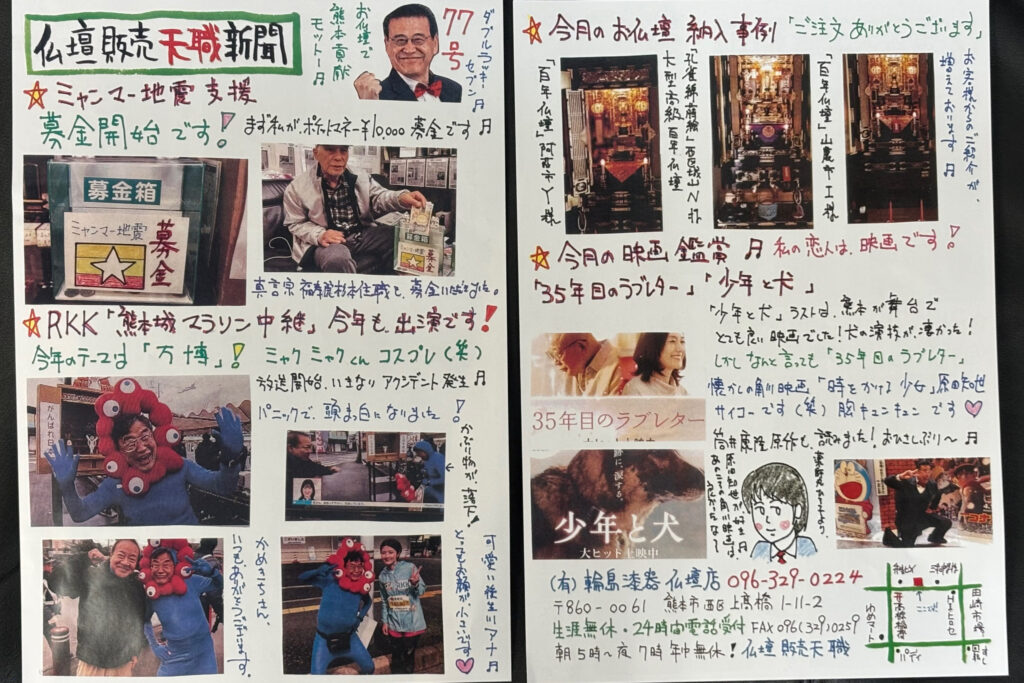 仏壇販売天職新聞
お仏壇で
熊本貢献
モットー♬
77号
ダブルラッキー
セブン♬
☆ミャンマー地震支援
募金開始です!
まず私が、ポケットマネー¥10000 募金です♬
募金箱
ミャンマー地震
募金
募金箱
ミャンマー地震
募金
☆RKK「熊本城マラソン中継」今年も、出演です!
今年のテーマは「万博」!
ミャクミャクくん コスプレ(笑)
放送開始、いきなり アクシデント発生♬
パニックで、頭ま白になりました!
がんばれ
かぶり物が、落下!
かめきちさん、
いつもありがとうございます。
可愛い後生川アナ♬
とってもお顔が小さいです♡
☆今月のお仏壇 納入事例「ご注文ありがとうございます」
「百年仏壇」阿蘇市Y様
大型高級百年仏壇
「百年仏壇」山鹿市I様
お客様からのご紹介が、
増えております♬
☆今月の映画鑑賞♬ 私の恋人は、映画です!
「35年目のラブレター」「少年と犬」
「少年と犬」ラストは、熊本が舞台で
とても良い映画でした!犬の演技が、凄かった!
しかしなんと言っても「35年目のラブレター」
懐かしの角川映画「時をかける少女」原田知世
サイコーです(笑)胸キュンキュンです♡
筒井康隆原作も、読みました!おひさしぶり〜♬
35年目のラブレター
大ヒット上映中
少年と犬
大ヒット上映中
(有)輪島漆器仏壇店 096-329-0224
〒860-0061 熊本市西区上高橋1-11-2
生涯無休・24時間電話受付 FAX096(329)0259
朝5時〜夜7時 年中無休!仏壇販売天職
ゆめマート
田崎市場